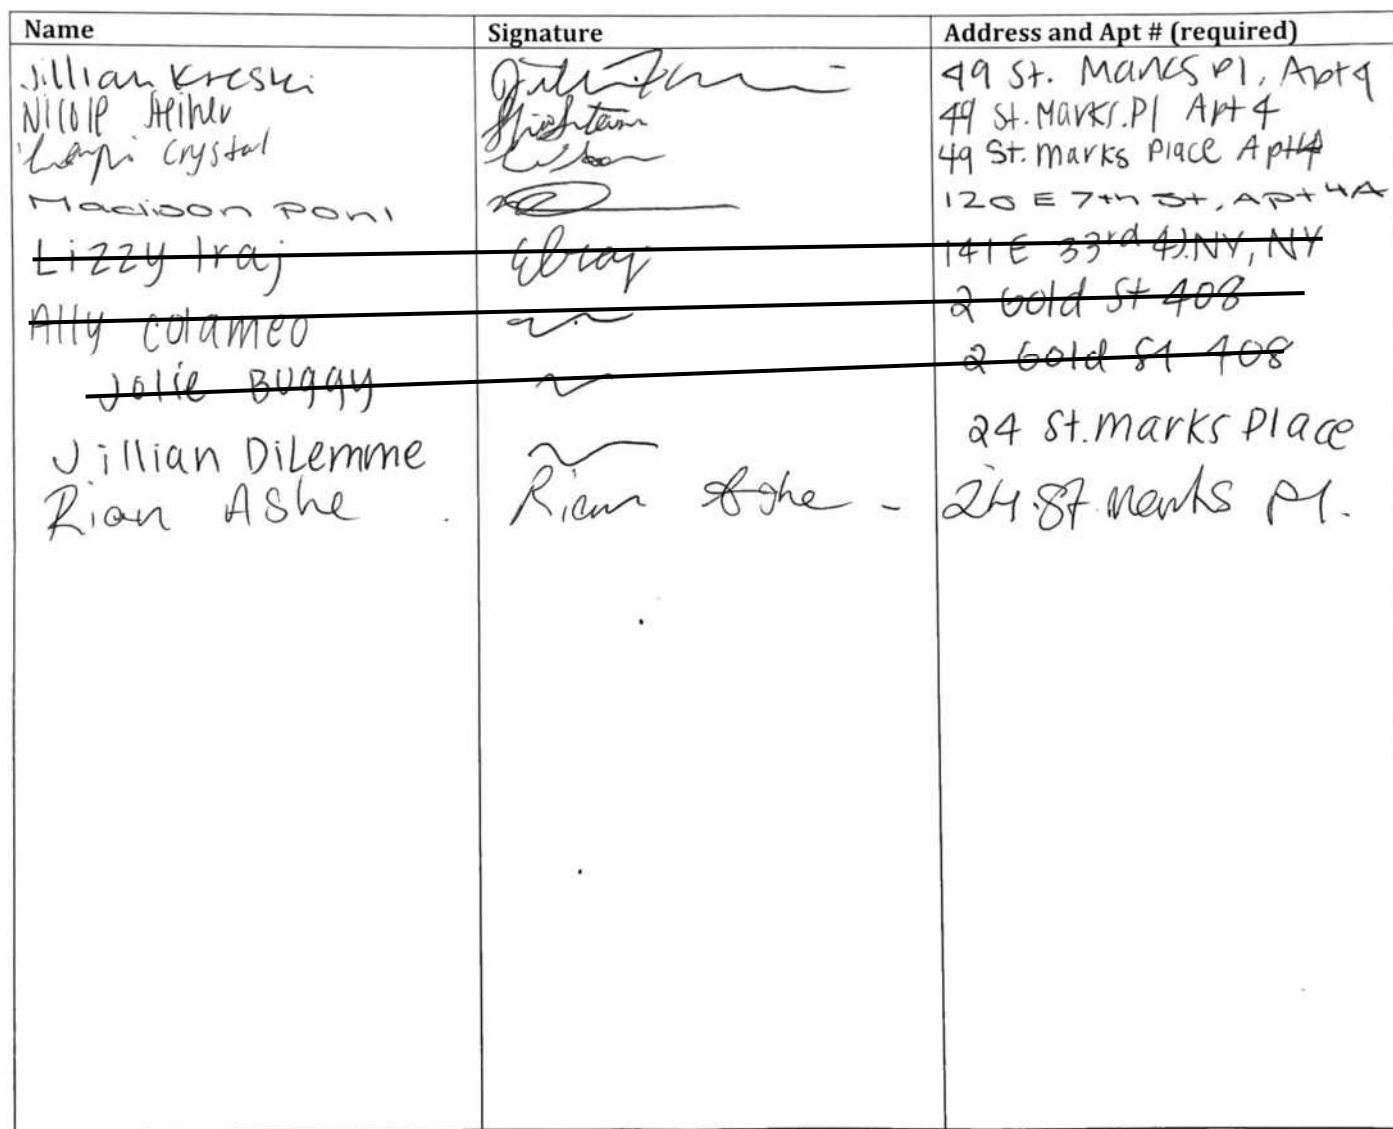 Name Signature Address and Apt # (required)
Jillian Kreski 49 St. Marks Pl, Apt 4
Nicole 49 St. Marks. Pl Apt 4
Crystal 49 St. Marks Place Apt 4
Madison Poni 120 E 7th St, Apt 4A
Lizzy Iraj 141 E 33rd NY, NY
Ally Colameo 2 Gold St 408
Jolie Buggy 2 Gold St 408
Jillian DiLemme 24 St. Marks Place
Rian Ashe Rian Ashe 24 St. Marks Pl.